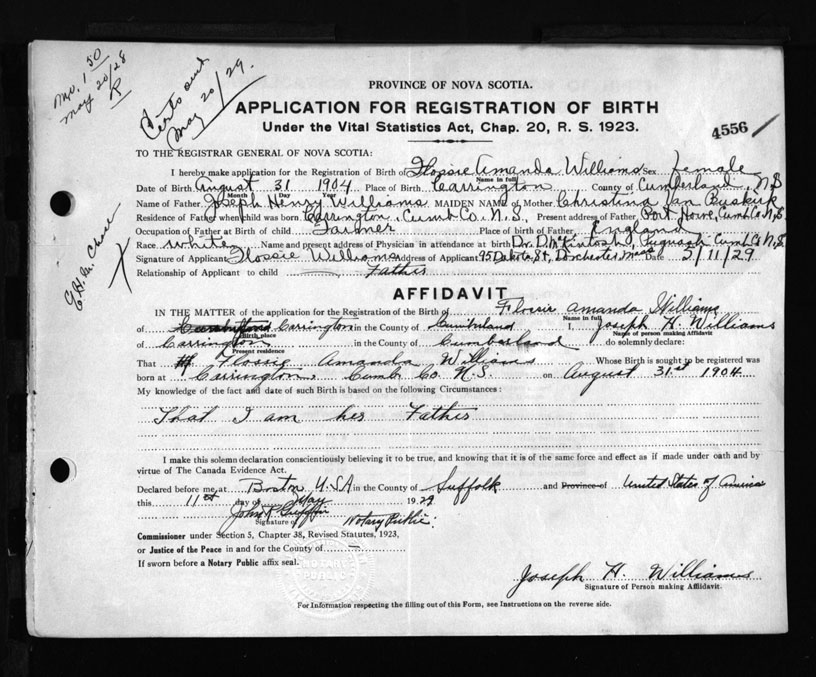 Mo. 1 50
May 20/28
R
Certs out
May 20/29.
E.H.M. Chase
PROVINCE OF NOVA SCOTIA.
APPLICATION FOR REGISTRATION OF BIRTH
Under the Vital Statistics Act, Chap. 20, R. S. 1923.
4556
TO THE REGISTRAR GENERAL OF NOVA SCOTIA:
I hereby make application for the Registration of Birth of Flossie Amanda Williams Sex Female
Name in full
Date of Birth August 31 1904 Place of Birth Carrington County of Cumberland, N.S
Day Year
Name of Father Joseph Henry Williams MAIDEN NAME of Mother Christina Van Buskirk
Residence of Father when child was born Carrington, Cumb Co. N.S., Present address of Father Port Howe, Cumb Co N.S.
Occupation of Father at Birth of child Farmer Place of birth of Father England
Race white Name and present address of Physician in attendance at birth Dr. D. McKintosh, Pugwash Cumb Co N.S
Signature of Applicant Flossie Williams Address of Applicant 95 Dakota St, Dorchester Mass Date 5/11/29
Relationship of Applicant to child — Father
AFFIDAVIT
IN THE MATTER of the application for the Registration of the Birth of Flossie Amanda Williams
Name in full
of Carrington in the County of Cumberland I, Joseph H. Williams
Birth place Name of person making Affidavit
of Carrington in the County of Cumberland do solemnly declare:
Present residence
That Flossie Amanda Williams Whose Birth is sought to be registered was
born at Carrington Cumb Co. N.S. on August 31st 1904
My knowledge of the fact and date of such Birth is based on the following Circumstances:
That I am her Father
I make this solemn declaration conscientiously believing it to be true, and knowing that it is of the same force and effect as if made under oath and by
virtue of The Canada Evidence Act.
Declared before me at Boston USA in the County of Suffolk and Province of United States of America
this 11th day of May 1929
John F. Griffin Notary Public
Signature of
Commissioner under Section 5, Chapter 38, Revised Statutes, 1923,
or Justice of the Peace in and for the County of —
If sworn before a Notary Public affix seal.
NOTARY PUBLIC
Joseph H. Williams
Signature of Person making Affidavit.
For Information respecting the filling out of this Form, see Instructions on the reverse side.